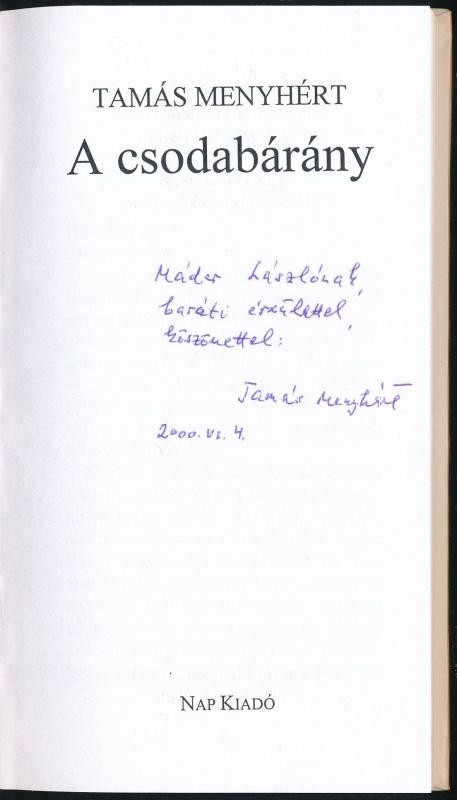 TAMÁS MENYHÉRT
A csodabárány
Máder Lászlónak,
baráti érzülettel,
köszönettel:
Tamás Menyhért
2000. VI. 4.
NAP KIADÓ